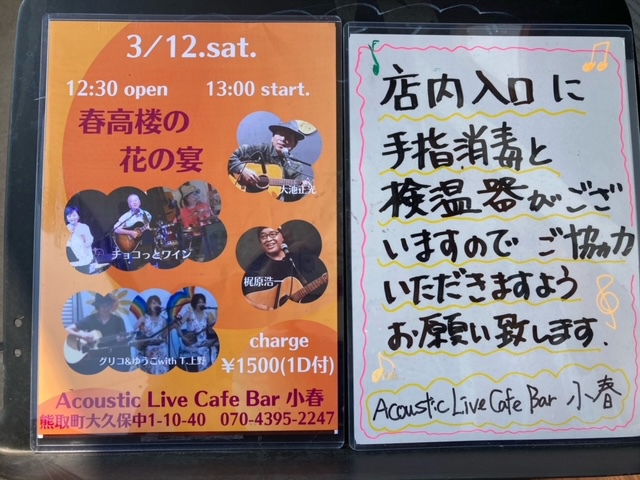 3/12.sat.
12:30 open 13:00 start.
春高楼の
花の宴
大池正光
チョコっとワイン
梶原浩一
グリコ&ゆうこwith T.上野
charge
¥1500(1D付)
Acoustic Live Cafe Bar 小春
熊取町大久保中1-10-40 070-4395-2247
店内入口に
手指消毒と
検温器がござ
いますのでご協力
いただきますよう
お願い致します.
Acoustic Live Cafe Bar 小春